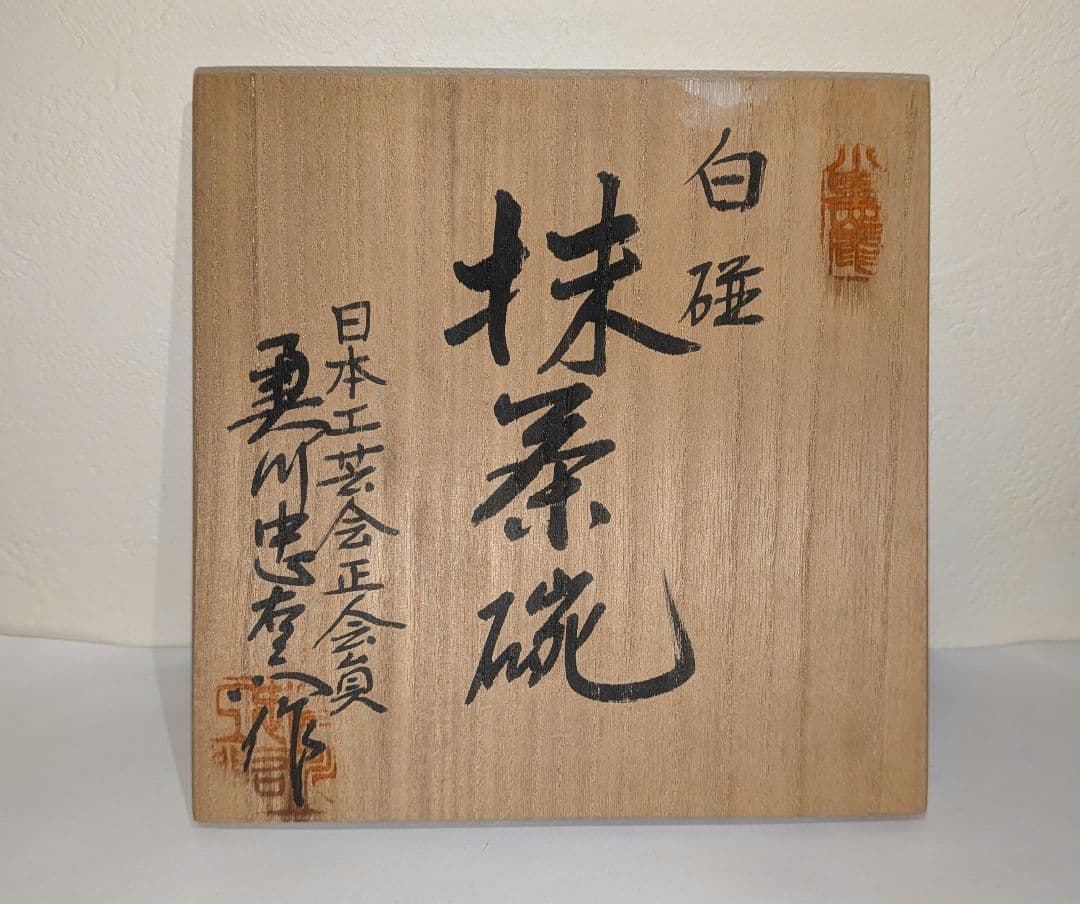 白磁
抹茶碗
日本工芸会正会員
奥川忠右ヱ門作